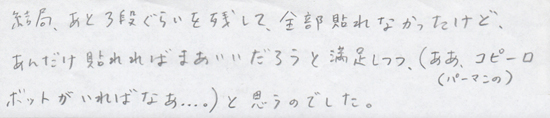 結局、あと3段ぐらいを残して、全部貼れなかったけど、
あんだけ貼れればまあいいだろうと満足しつつ、(ああ、コピーロ
(パーマンの)
ボットがいればなあ....。)と思うのでした。